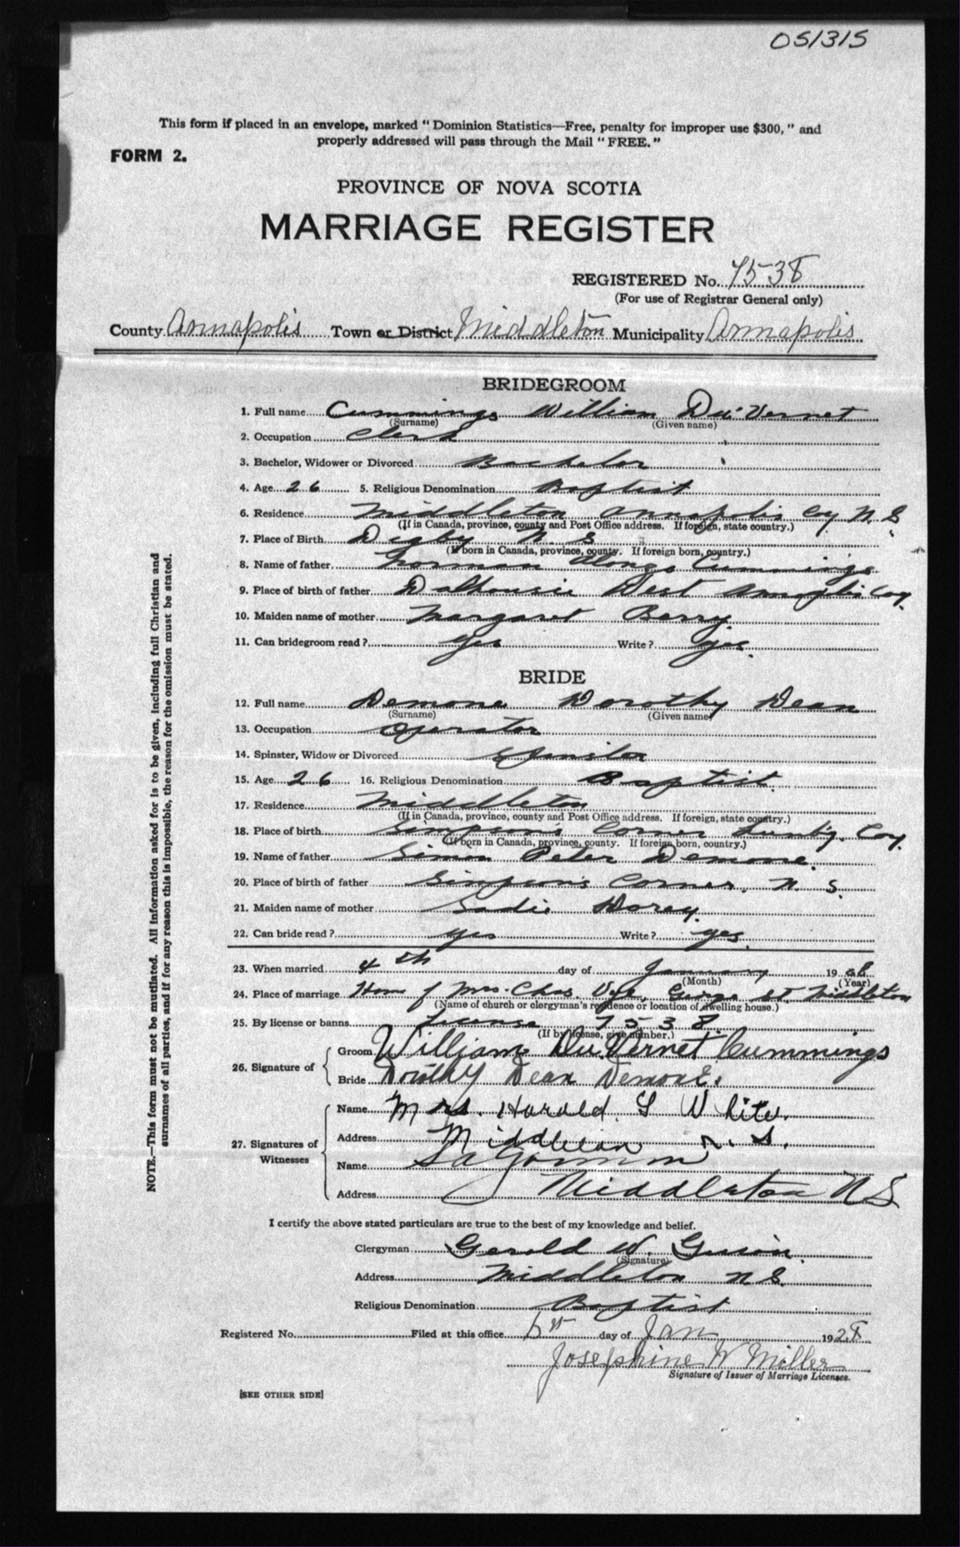 051315
This form if placed in an envelope, marked "Dominion Statistics—Free, penalty for improper use $300," and
properly addressed will pass through the Mail "FREE."
FORM 2.
PROVINCE OF NOVA SCOTIA
MARRIAGE REGISTER
REGISTERED No. 7538
(For use of Registrar General only)
County Annapolis Town or District Middleton Municipality Annapolis
BRIDEGROOM
1. Full name Cummings William Du'Vernet
(Surname) (Given name)
2. Occupation Clerk
3. Bachelor, Widower or Divorced Bachelor
4. Age 26 5. Religious Denomination Baptist
6. Residence Middleton Annapolis Coy N.S
(If in Canada, province, county and Post Office address. If foreign, state country.)
7. Place of Birth Digby N.S
(If born in Canada, province, county. If foreign born, country.)
8. Name of father Norman Alonzo Cummings
9. Place of birth of father Dalhousie West Coy.
10. Maiden name of mother Margaret Berry
11. Can bridegroom read? Yes Write? Yes.
BRIDE
12. Full name Demone Dorothy Dean
(Surname) (Given name)
13. Occupation Operator
14. Spinster, Widow or Divorced Spinster
15. Age 26 16. Religious Denomination Baptist.
17. Residence Middleton
(If in Canada, province, county and Post Office address. If foreign, state country.)
18. Place of birth Simpson's Corner Coy.
(If born in Canada, province, county. If foreign born, country.)
19. Name of father Simon Peter Demone
20. Place of birth of father Simpson's Corner. N. S.
21. Maiden name of mother Sadie Dorey.
22. Can bride read? yes Write? yes.
23. When married 4th day of January 19
(Month) (Year)
24. Place of marriage Home of Mrs. Chas. St. Middleton
(Name of church or clergyman's residence or location of dwelling house.)
25. By license or banns License 7538.
(If by license, give number.)
26. Signature of
Groom William Du'Vernet Cummings
Bride Dorothy Dean Demone.
27. Signatures of Witnesses
Name Mrs. Harold S White.
Address Middleton N. S.
Name
Address Middleton NS
I certify the above stated particulars are true to the best of my knowledge and belief.
Clergyman Gerold W. Guion.
(Signature)
Address Middleton N S.
Religious Denomination Baptist
Registered No. Filed at this office day of Jan 1928
Josephine W Miller
Signature of Issuer of Marriage Licenses.
[SEE OTHER SIDE]
NOTE.—This form must not be mutilated. All information asked for is to be given, including full Christian and
surnames of all parties, and if for any reason this is impossible, the reason for the omission must be stated.